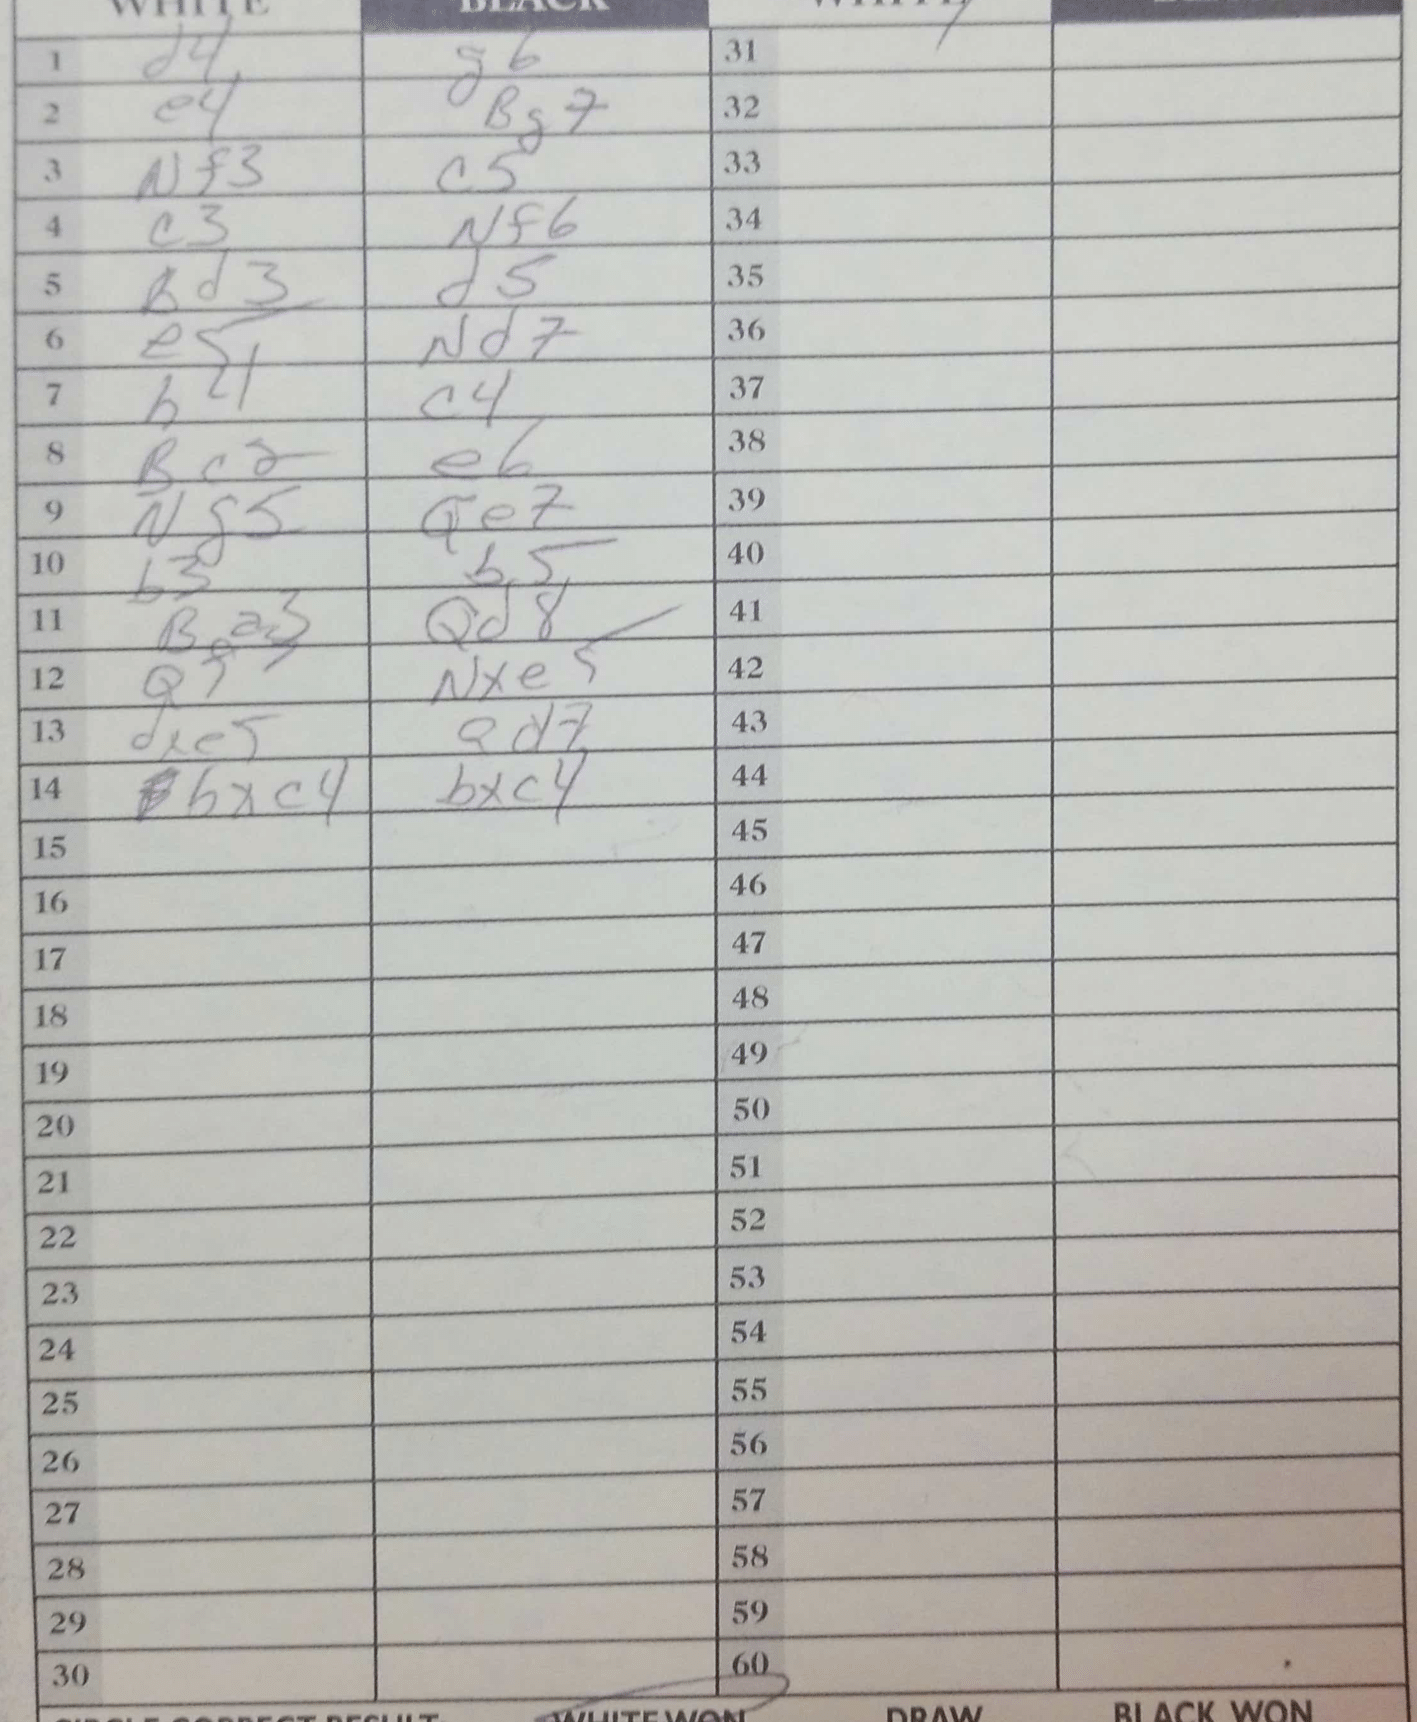 WHITE BLACK WHITE
1 d4 g6 31
2 e4 Bg7 32
3 Nf3 c5 33
4 c3 Nf6 34
5 Bd3 d5 35
6 e5 Nd7 36
7 h4 c4 37
8 Bc2 e6 38
9 Ng5 Qe7 39
10 b3 b5 40
11 Ba3 Qd8 41
12 Qf3 Nxe5 42
13 dxe5 Qd7 43
14 bxc4 bxc4 44
15 45
16 46
17 47
18 48
19 49
20 50
21 51
22 52
23 53
24 54
25 55
26 56
27 57
28 58
29 59
30 60
CIRCLE CORRECT RESULT WHITE WON DRAW BLACK WON